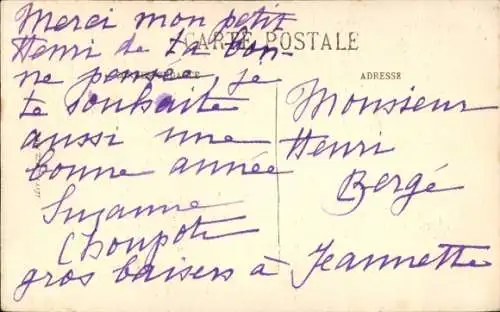 Merci mon petit
Henri de ta bon-
CARTE POSTALE
ne pensée, je
te souhaite
aussi une
bonne année
Suzanne
Choupot
gros baisers à Jeannette
ADRESSE
Monsieur
Henri
Bergé